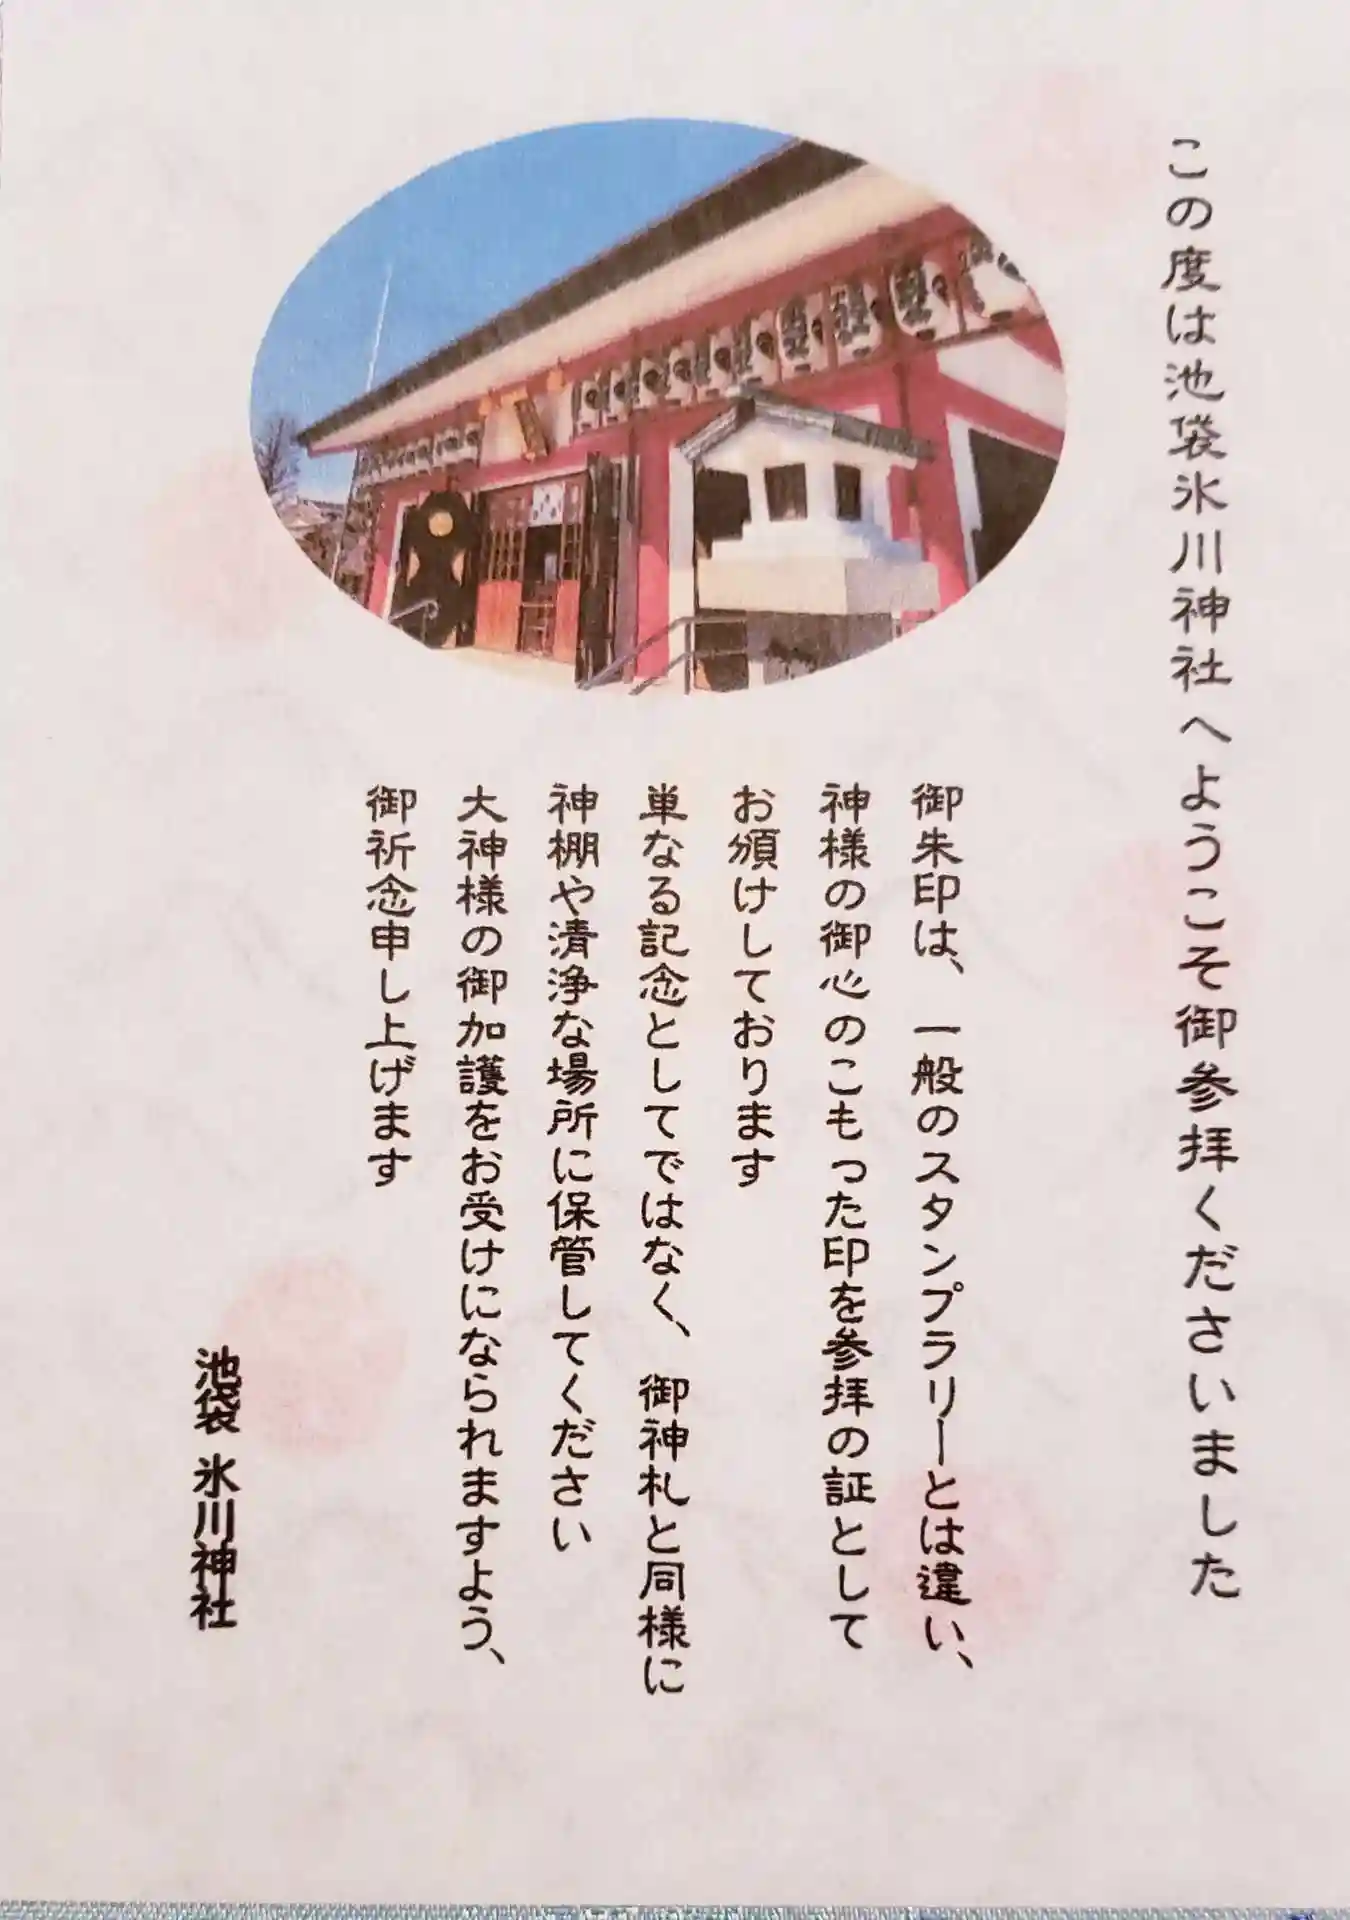 この度は池袋氷川神社へようこそ御参拝くださいました
御朱印は、一般のスタンプラリーとは違い、
神様の御心のこもった印を参拝の証として
お頒けしております
単なる記念としてではなく、御神札と同様に
神棚や清浄な場所に保管してください
大神様の御加護をお受けになられますよう、
御祈念申し上げます
池袋 氷川神社